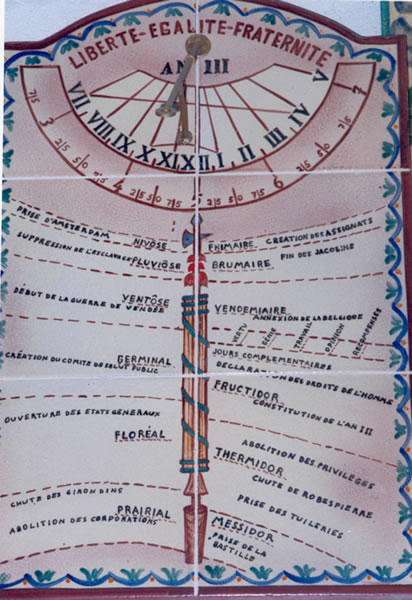 LIBERTE-EGALITE-FRATERNITE
AN III
VII VIII IX X XI XII I II III IV V
7/5 3 2/5 5/0 7/5 4 2/5 5/0 7/5 5 2/5 5/0 7/5 6 2/5 5/0 7/5 7
PRISE D'AMSTERDAM NIVÔSE FRIMAIRE CREATION DES ASSIGNATS
SUPPRESSION DE L'ESCLAVAGE PLUVIÔSE BRUMAIRE FIN DES JACOBINS
VENTÔSE VENDEMIAIRE
DÉBUT DE LA GUERRE DE VENDÉE ANNEXION DE LA BELGIQUE
VERTU GÉNIE TRAVAIL OPINION RECOMPENSES
GERMINAL JOURS COMPLEMENTAIRES
CRÉATION DU COMITE DE SALUT PUBLIC DECLARATION DES DROITS DE L'HOMME
FRUCTIDOR
CONSTITUTION DE L'AN III
OUVERTURE DES ETATS GENERAUX
FLORÉAL
ABOLITION DES PRIVILÉGES
THERMIDOR
CHUTE DE ROBESPIERRE
CHUTE DES GIRONDINS
PRISE DES TUILERIES
PRAIRIAL
ABOLITION DES CORPORATIONS
MESSIDOR
PRISE DE LA
BASTILLE